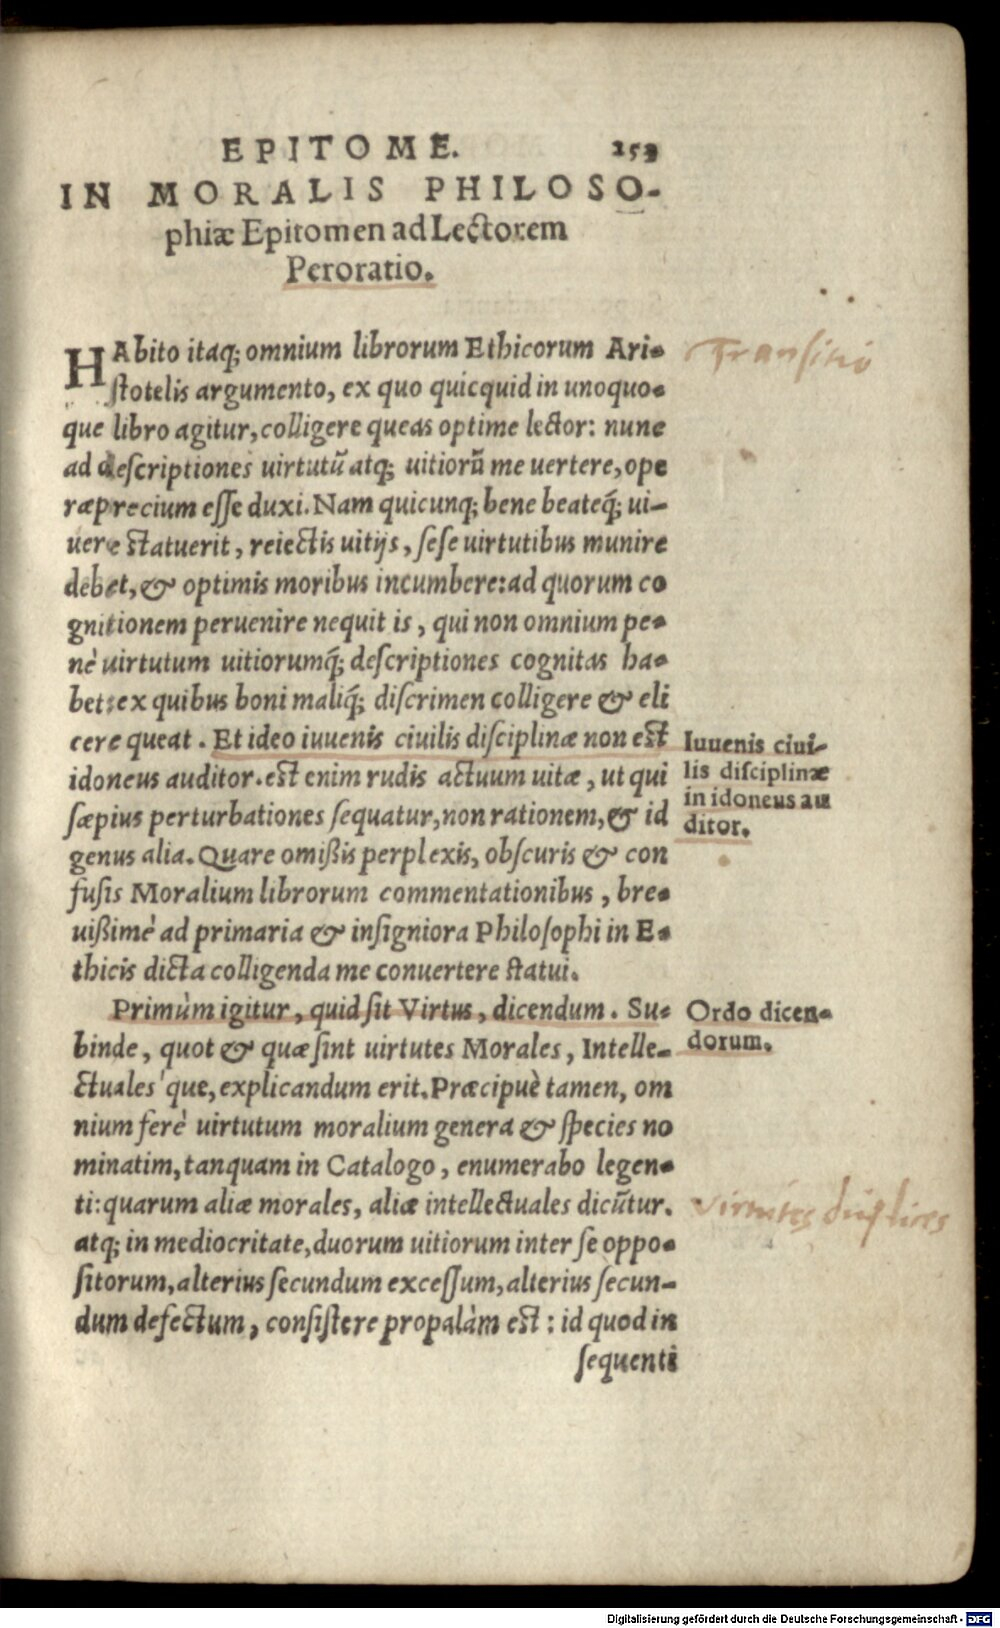 EPITOME. 253
IN MORALIS PHILOSO-
phiæ Epitomen ad Lectorem
Peroratio.
HAbito itaq; omnium librorum Ethicorum Ari-
stotelis argumento, ex quo quicquid in unoquo-
que libro agitur, colligere queas optime lector: nunc
ad descriptiones uirtutū atq; uitiorū me uertere, ope
ræprecium esse duxi. Nam quicunq; bene beateq́; ui-
uere statuerit, reiectis uitijs, sese uirtutibus munire
debet, & optimis moribus incumbere: ad quorum co
gnitionem peruenire nequit is, qui non omnium pe-
nè uirtutum uitiorumq́; descriptiones cognitas ha-
bet: ex quibus boni maliq́; discrimen colligere & eli
cere queat. Et ideo iuuenis ciuilis disciplinæ non est
idoneus auditor. est enim rudis actuum uitæ, ut qui
sæpius perturbationes sequatur, non rationem, & id
genus alia. Quare omißis perplexis, obscuris & con
fusis Moralium librorum commentationibus, bre-
uißimè ad primaria & insigniora Philosophi in E-
thicis dicta colligenda me conuertere statui.
Primùm igitur, quid sit Virtus, dicendum. Su-
binde, quot & quæ sint uirtutes Morales, Intelle-
ctuales'que, explicandum erit. Præcipuè tamen, om
nium ferè uirtutum moralium genera & species no
minatim, tanquam in Catalogo, enumerabo legen-
ti: quarum aliæ morales, aliæ intellectuales dicūtur.
atq; in mediocritate, duorum uitiorum inter se oppo-
sitorum, alterius secundum excessum, alterius secun-
dum defectum, consistere propalàm est: id quod in
sequenti
Transitio
Iuuenis ciui-
lis disciplinæ
in idoneus au
ditor.
Ordo dicen-
dorum.
virtutes duplices
Digitalisierung gefördert durch die Deutsche Forschungsgemeinschaft - DFG